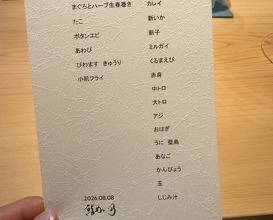 まぐろとハーブ生春巻き
たこ
ボタンエビ
あわび
びわます きゅうり
小肌フライ
カレイ
新いか
新子
ミルガイ
くるまえび
赤身
中トロ
大トロ
アジ
おはぎ
うに 昆島
あなご
かんぴょう
玉
しじみ汁
2026.08.08